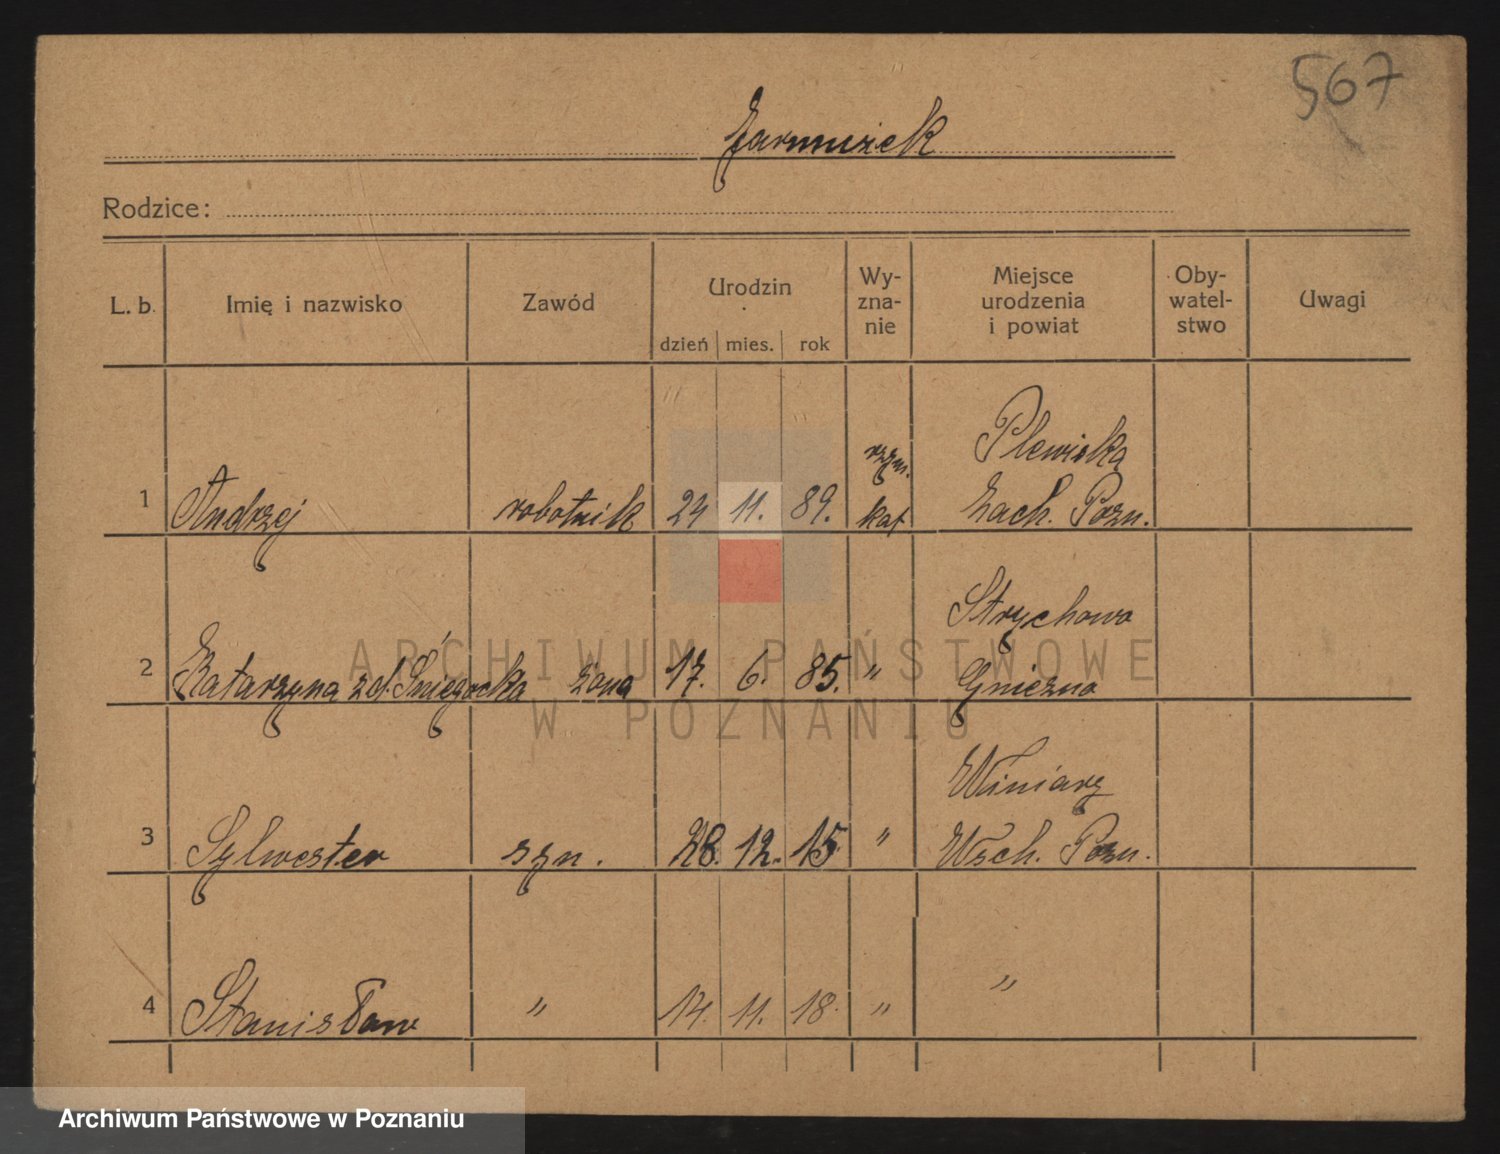 567
Żarmużek
Rodzice:
L. b. Imię i nazwisko Zawód Urodzin dzień mies. rok Wy-zna-nie Miejsce urodzenia i powiat Oby-watel-stwo Uwagi
Plewiska
rzym.
1 Andrzej robotnik 24 11. 89. kat Zach. Pozn.
Strychowo
2 Katarzyna z d. Śniegocka żona 17. 6. 85. " Gniezno
Winiary
3 Sylwester syn. 28. 12. 15. " Wsch. Pozn.
4 Stanisław " 14. 11. 18. " "
ARCHIWUM PAŃSTWOWE
W POZNANIU
Archiwum Państwowe w Poznaniu